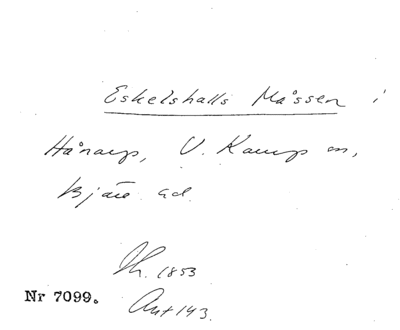 Eskelshalls Måssen i
Hånarp, V. Karup sn,
Bjäre hd.
Th. 1853
Nr 7099.
Ant 143.